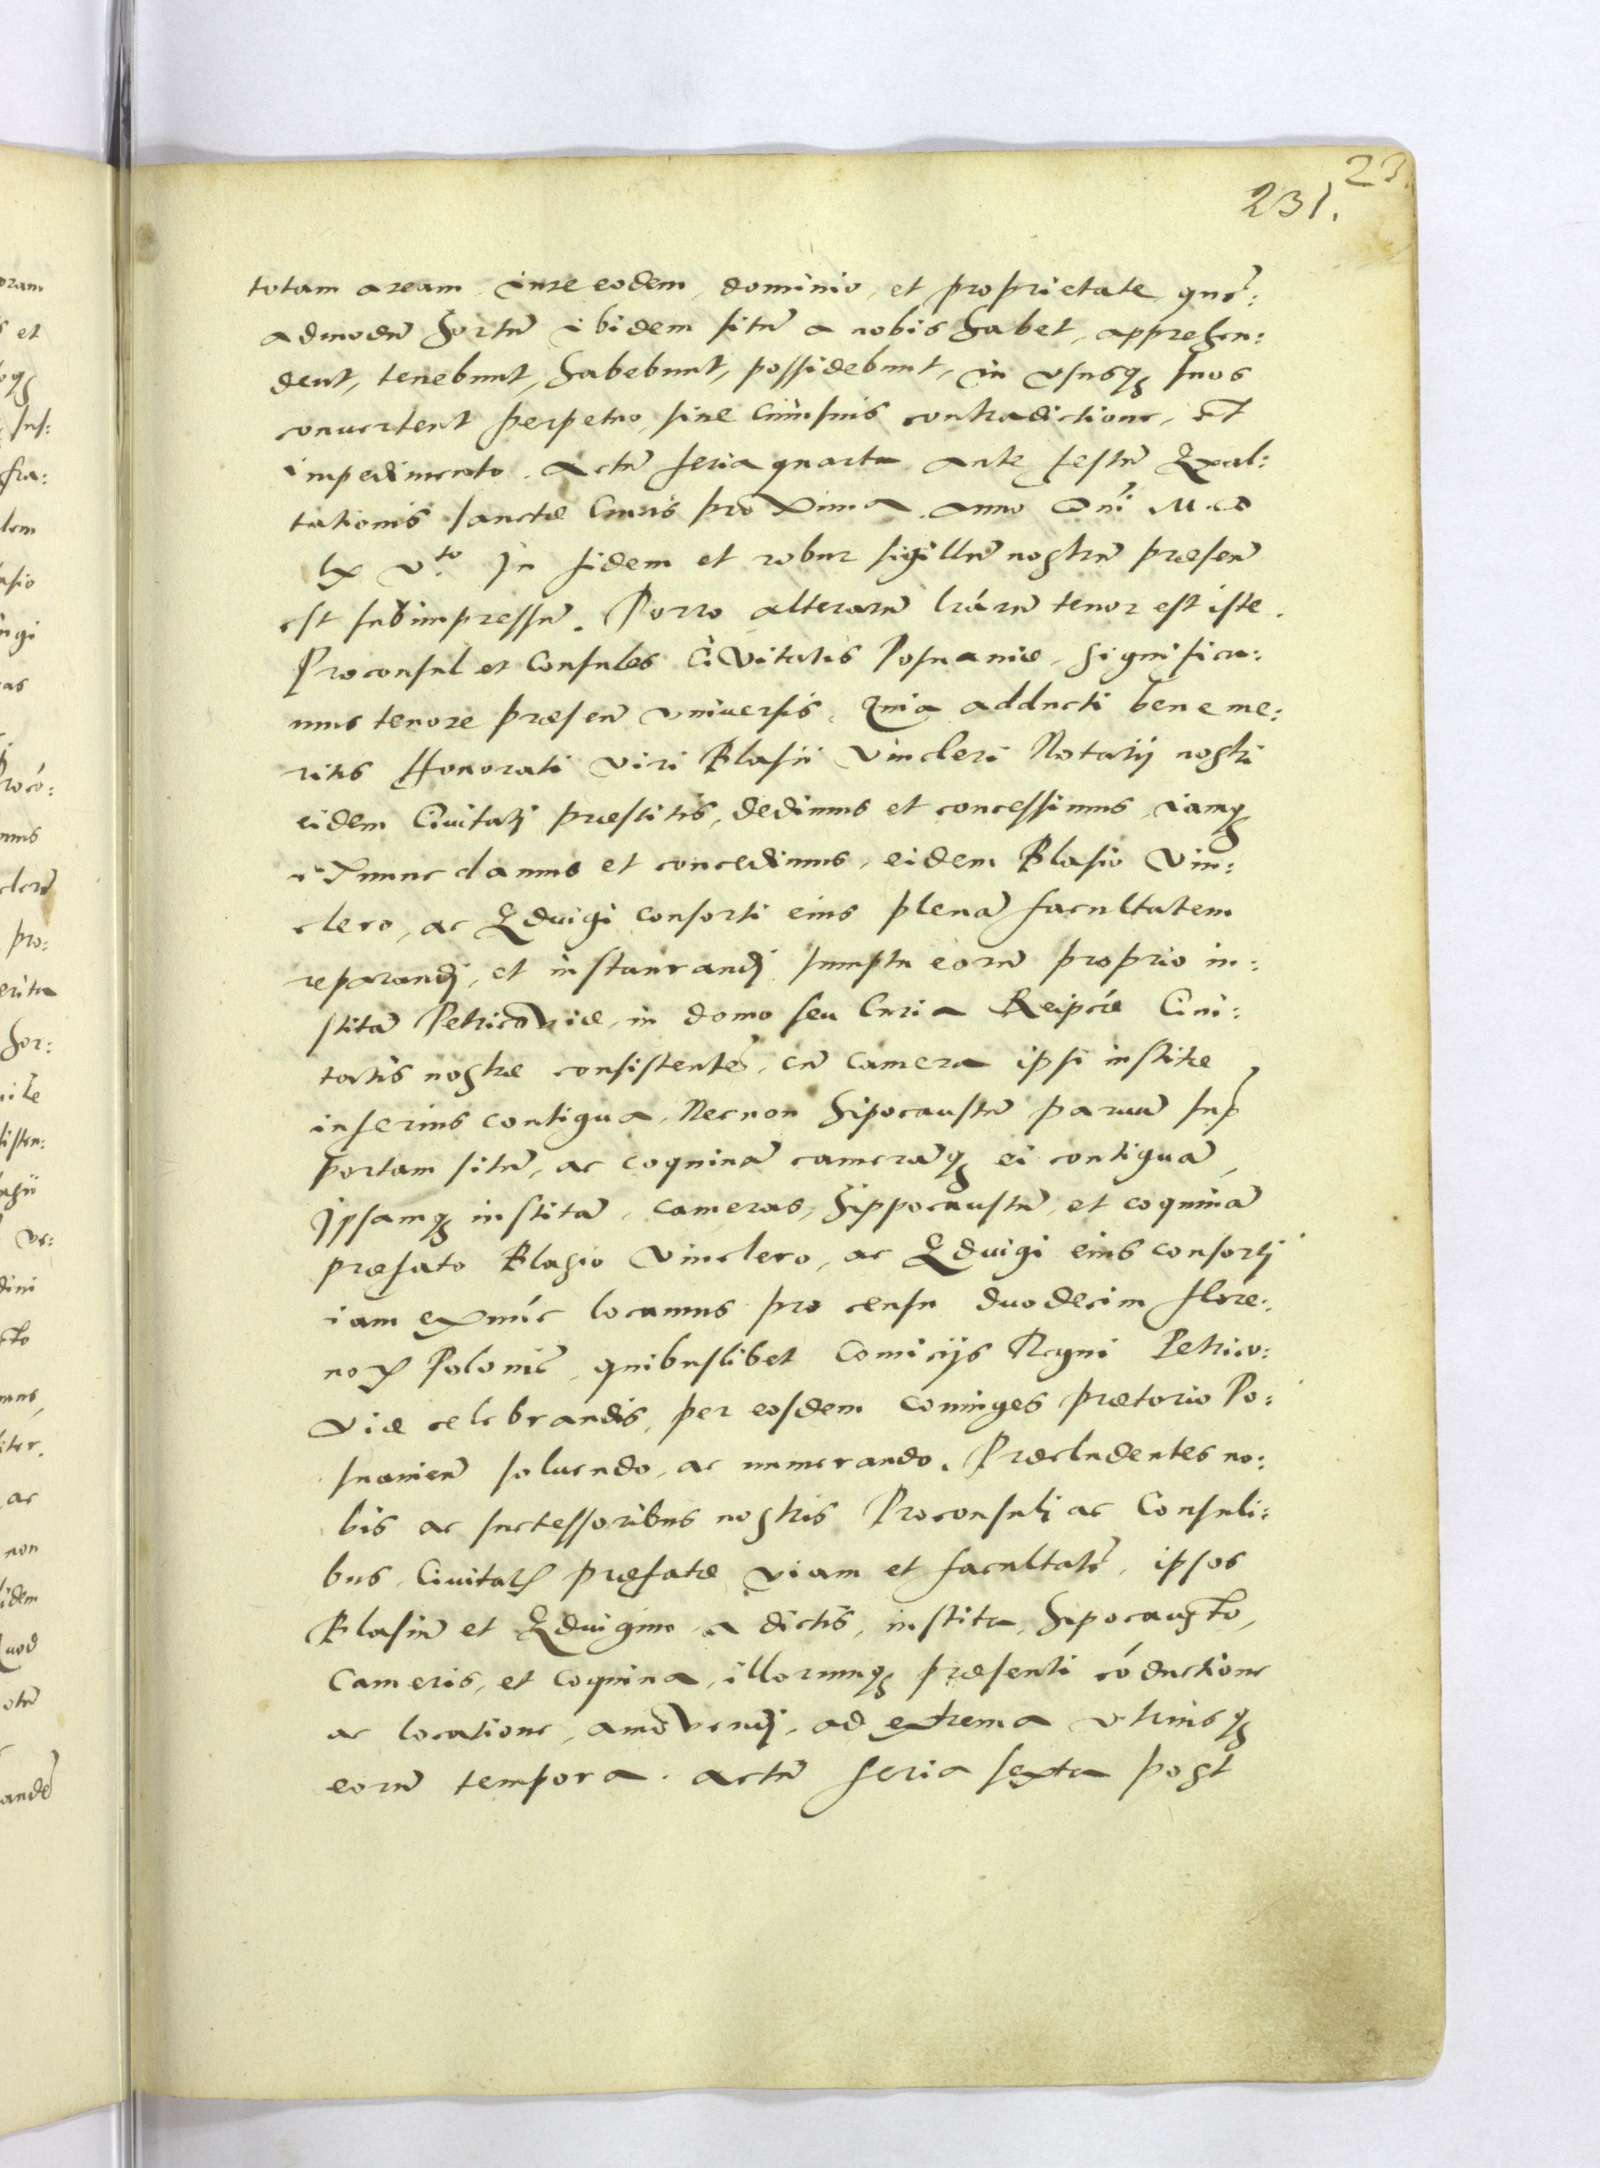 23
231.
totam aream iure eodem, dominio, et proprietate, quẽ:
admodũ hortũ ibidem sitũ a nobis habet, apprehen:
dent, tenebunt, habebunt, possidebunt, in vsusq₃ suos
conuertent perpetuo, sine cuiusuis contradictione, et
impedimento. Actũ feria quarta ante festũ Exal:
tationis sanctæ Crucis proxima. anno Dñi M. D
lx v.to In fidem et robur sigillũ nostrũ præsen̄
est subimpressũ. Porro alterarũ lrárũ tenor est iste.
Proconsul et Consules Ciuitatis Posnaniæ, significa:
mus tenore præsen̄ vniuersis, Quia adducti beneme:
ritis Honorati viri Blasii Vincleri Notarij nostri
eidem Ciuitati præstitis, dedimus et concessimus, iamq₃
ex nunc damus et concedimus, eidem Blasio Vin:
clero, ac Eduigi consorti eius plenã facultatem
reparandi, et instaurandi sumptu eorũ proprio in:
stitã Petricouiæ, in domo seu Curia Reipcæ Ciui:
tatis nostræ consistentẽ, cũ camera ipsi institæ
inferius contigua, Necnon hipocaustũ paruũ sup̱
portam sitũ, ac coquinã camerãq₃ ei contiguã,
Ipsamq₃ institã, cameras, hippocaustũ, et coquinã
præfato Blasio Vinclero, ac Eduigi eius consorti
iam ex núc locamus pro censu duodecim flore:
noꝝ Poloniẽ, quibuslibet Comicijs Regni Petrico:
viæ celebrandis, per eosdem coniuges prætorio Po:
snanien̄ soluendo, ac numerando. Præcludentes no:
bis ac successoribus nostris Proconsuli ac Consuli:
bus Ciuitatꝭ præfatæ viam et facultatẽ, ipsos
Blasiũ et Eduigim a dictis, instita, hipocausto,
Cameris, et coquina, illorumq₃ præsenti cõductione
ac locatione, amouendi, ad extrema vtriusq₃
eorũ tempora. Actũ feria sexta post